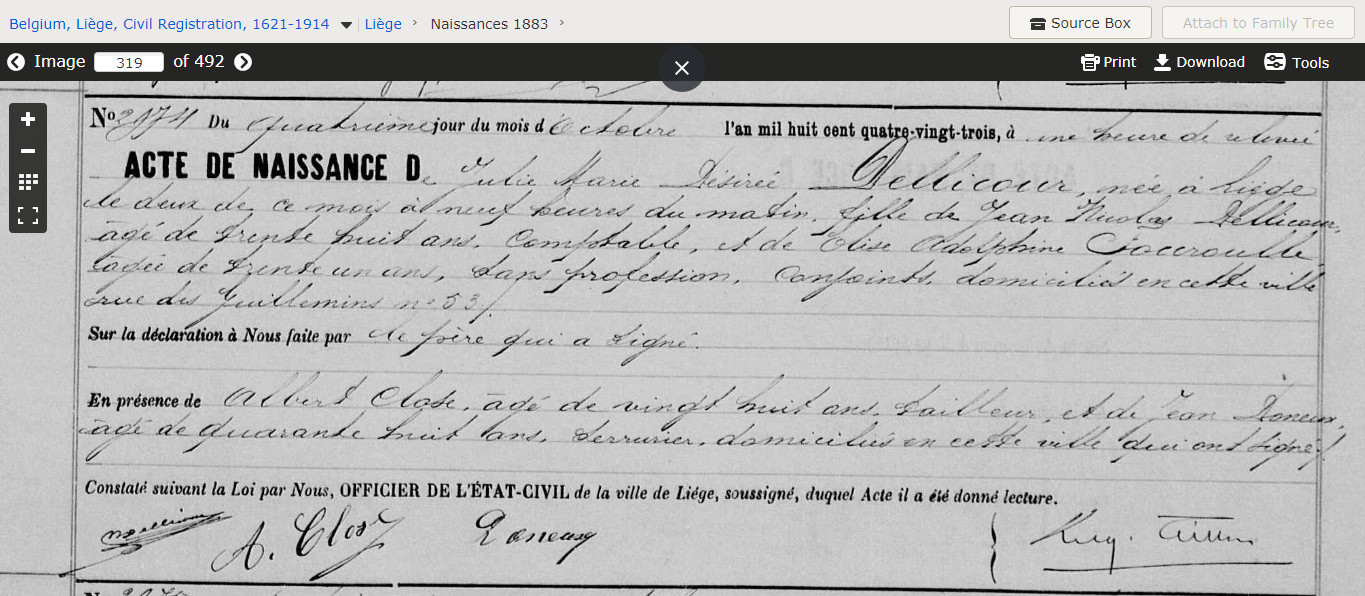 Belgium, Liège, Civil Registration, 1621-1914 Liège Naissances 1883
Source Box
Attach to Family Tree
Image 319 of 492
Print Download Tools
No 2074 Du quatrième jour du mois d'Octobre l'an mil huit cent quatre-vingt-trois, à une heure de relevée
ACTE DE NAISSANCE De Julie Marie Désirée Dellicour, née à Liége
le deux de ce mois à neuf heures du matin, fille de Jean Nicolas Dellicour,
âgé de trente huit ans, Comptable, et de Elise Adolphine Cocroulle,
âgée de trente un ans, sans profession, conjoints, domiciliés en cette ville
rue des Guillemins no 53/.
Sur la déclaration à Nous faite par le père qui a signé.
En présence de Albert Close, âgé de vingt huit ans, tailleur, et de Jean Doneux,
âgé de quarante huit ans, serrurier, domiciliés en cette ville qui ont signé/.
Constaté suivant la Loi par Nous, OFFICIER DE L'ÉTAT-CIVIL de la ville de Liége, soussigné, duquel Acte il a été donné lecture.
A. Close Doneux